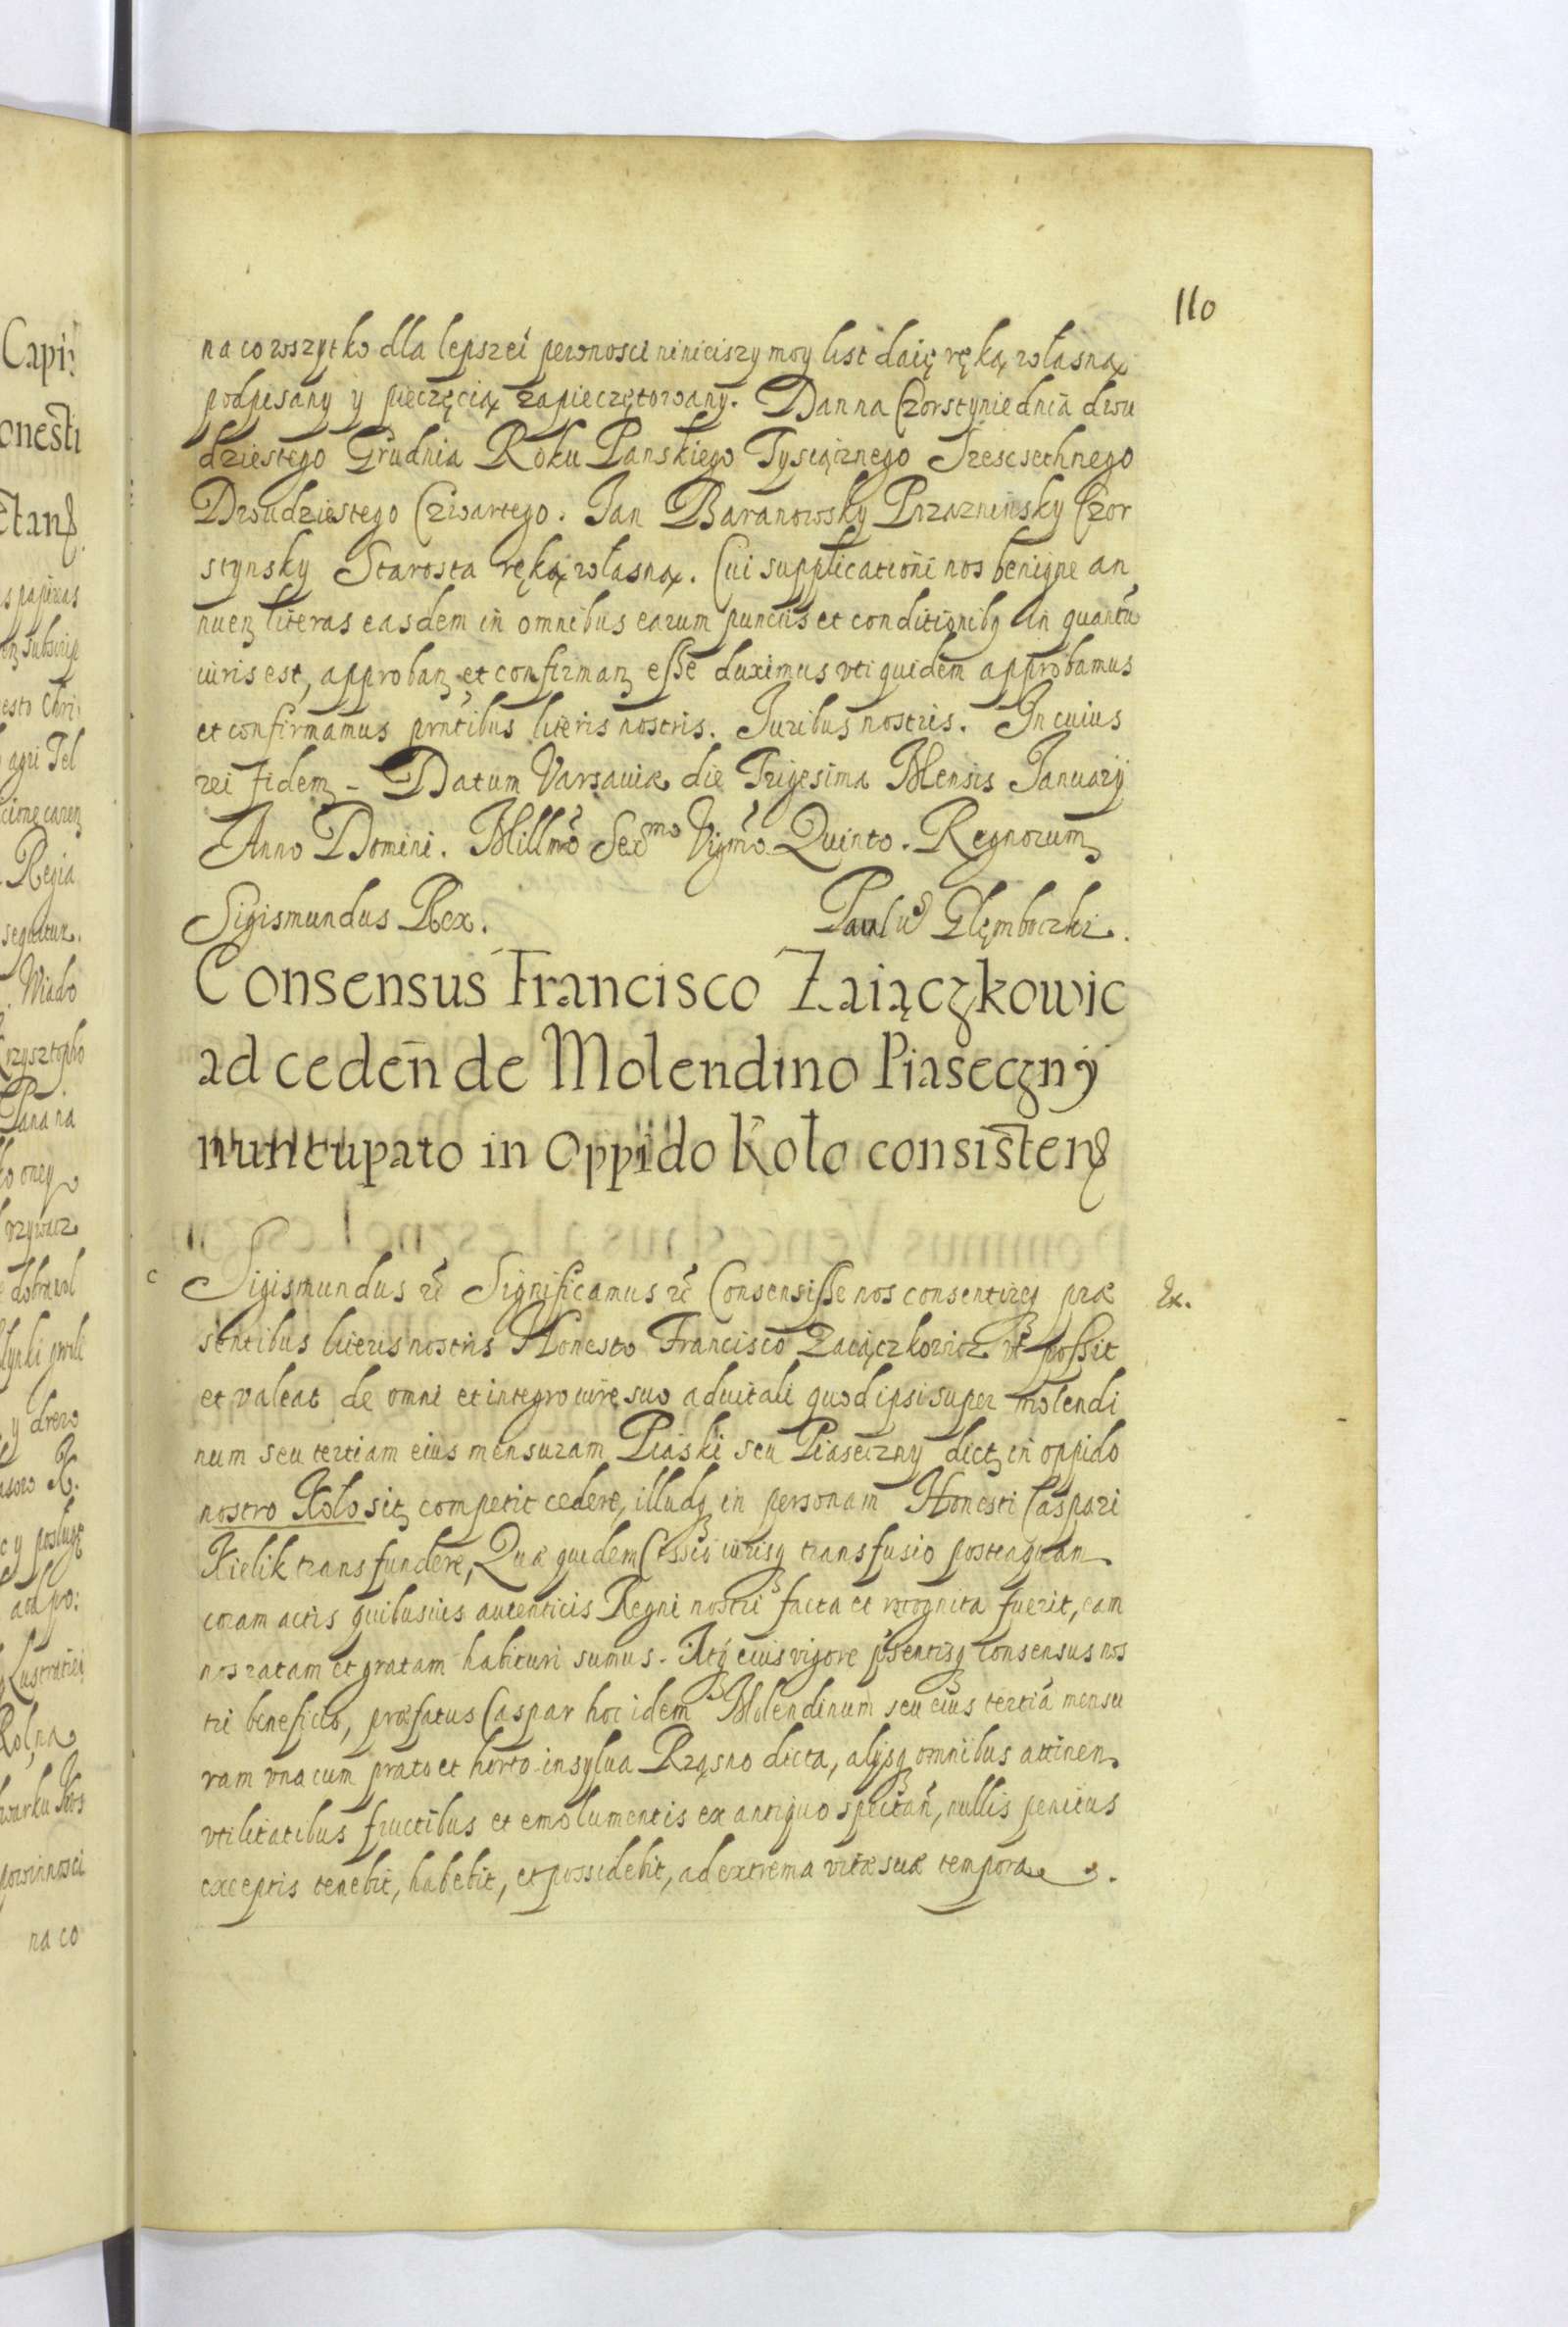 110
na co wszytko dla lepszei pewnosci ninieiszy moy list daię ręką własną
podpisany y pieczęcią zapieczętowany. Dan na Czorstynie dnia dwu
dziestego Grudnia Roku Panskiego Tysiącznego Szescsethnego
Dwudziestego Czwartego. Jan Baranowsky Czor
stynsky Starosta ręką własną. Cui supplicationi nos benigne an
nuen literas easdem in omnibus earum punctis et conditionibq in quantũ
iuris est, approban et confirman esse duximus vti quidem approbamus
et confirmamus prntibus literis nostris. Juribus nostris. In cuius
rei fidem - Datum Varsaviæ die Trigesima Mensis Januarij
Anno Domini. Millmo Sexmo Vigmo Quinto. Regnorum
Sigismundus Rex. Paulus Głęmboczki.
Consensus Francisco Zaiączkowic
ad ceden̄ de Molendino Piasecznÿ
nuncupato in Oppido Koło consisten
Sigismundus rc̃ Significamus rc̃ Consensisse nos consentireq præ
Ex.
sentibus literis nostris Honesto Francisco Zaiączkowicz vt possit
et valeat de omni et integro iure suo aduitali quod ipsi super molendi
num seu tertiam eius mensuram Piaski seu Piaseczny dict in oppido
nostro Koło sit competit cedere, illudq in personam Honesti Caspari
Kielik transfundere, Quæ quidem Cessio iurisq transfusio posteaquam
coram actis quibusuis autenticis Regni nostri facta et recognita fuerit, eam
nos ratam et gratam habituri sumus. Atq eius vigore pñsentisq consensus nos
tri beneficio, præfatus Caspar hoc idem Molendinum seu eius tertiã mensu
ram vna cum prato et horto in sylua Rząsno dicta, alijsq omnibus attinen
vtilitatibus fructibus et emolumentis ex antiquo spectan̄, nullis penitus
exceptis tenebit, habebit, et possidebit, ad extrema vitæ suæ tempora.